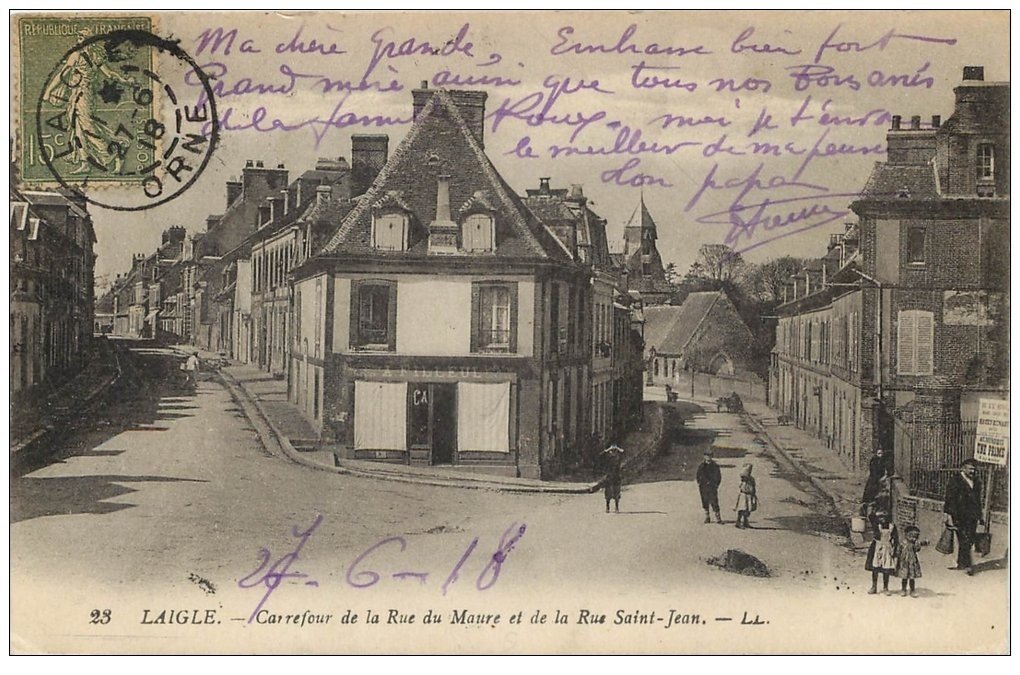 RÉPUBLIQUE FRANÇAISE
15c
LAIGLE
27-6
18
ORNE
Ma chère Grande, Embrasse bien fort
Grand mère ainsi que tous nos
de la famille moi je t'envoi
le meilleur de ma
ton papa
27-6-18
A TILLEUL
CA
UNE PRIME
23 LAIGLE. — Carrefour de la Rue du Maure et de la Rue Saint-Jean. — LL.